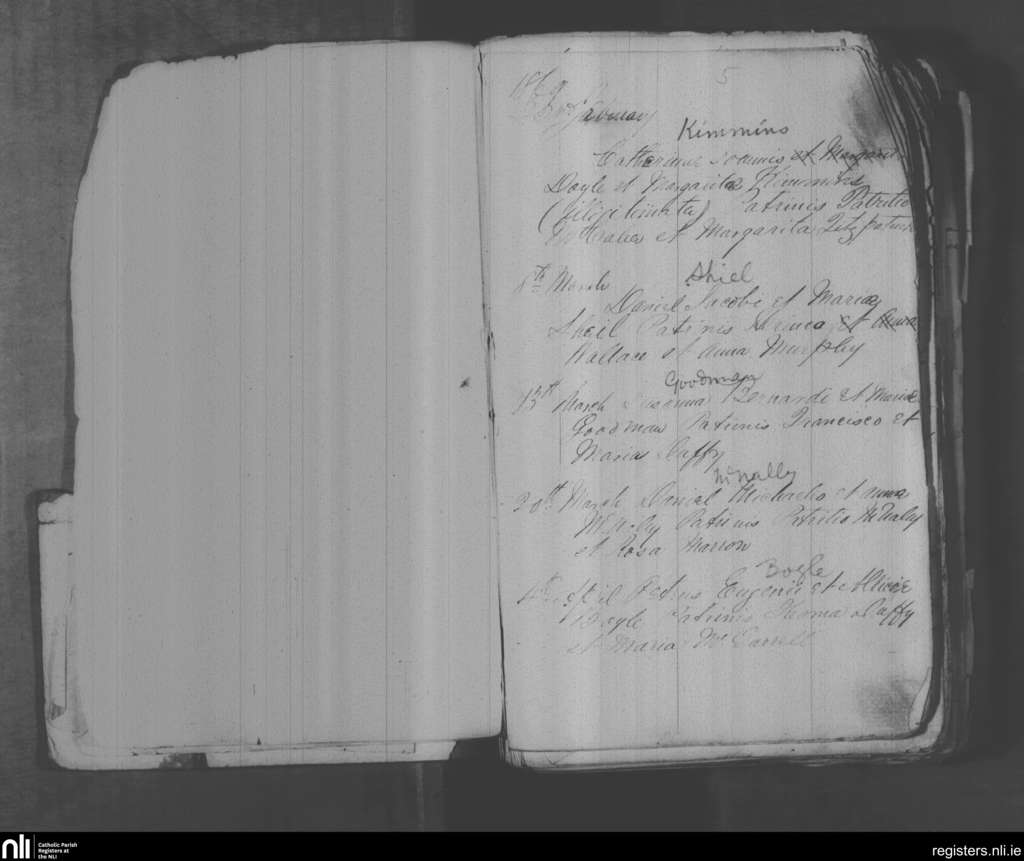 5
February
Kimmins
Catherine Joannis et Margarita
Doyle et Margaritae Kimmins
(illigitimata) Patrinis Patritio
et Margarita Fitzpatrick
8th March Shiel
Daniel Jacobi et Mariae
Sheil Patrinis et Anna
Wallace et Anna Murphy
Goodman
13th March Susanna Bernardi et Mariae
Goodman Patrinis Francisco et
Maria Caffy
McNally
20th March Daniel Michaelis et Anna
McNaly Patrinis Patritio McNaly
et Rosa Marron
Boyle
4th Petrus Eugenii et Aliciae
Boyle Patrinis Thoma Caffy
et Maria McCarrell
nli Catholic Parish
Registers at
the NLI
registers.nli.ie